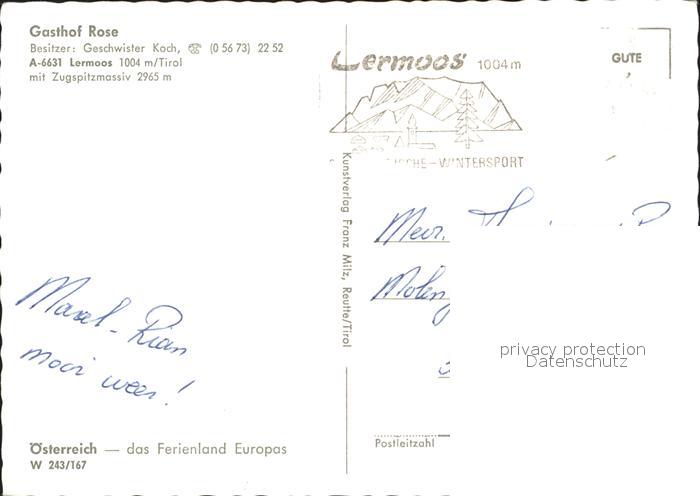 Gasthof Rose
Besitzer: Geschwister Koch, ☎ (0 56 73) 22 52
A-6631 Lermoos 1004 m/Tirol
mit Zugspitzmassiv 2965 m
Lermoos 1004 m
GUTE
ISCHE-WINTERSPORT
Kunstverlag Franz Milz, Reutte/Tirol
Marcel - Rian
mooi weer!
privacy protection
Datenschutz
Postleitzahl
Österreich — das Ferienland Europas
W 243/167